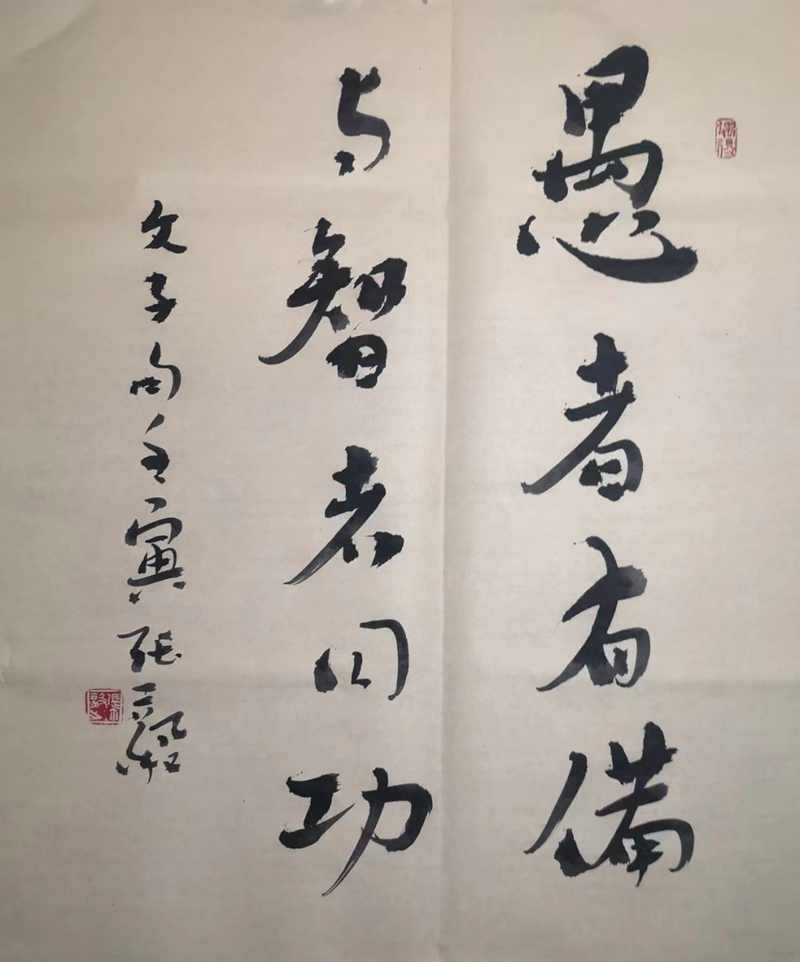 愚者有备
与智者同功
文子句壬寅张